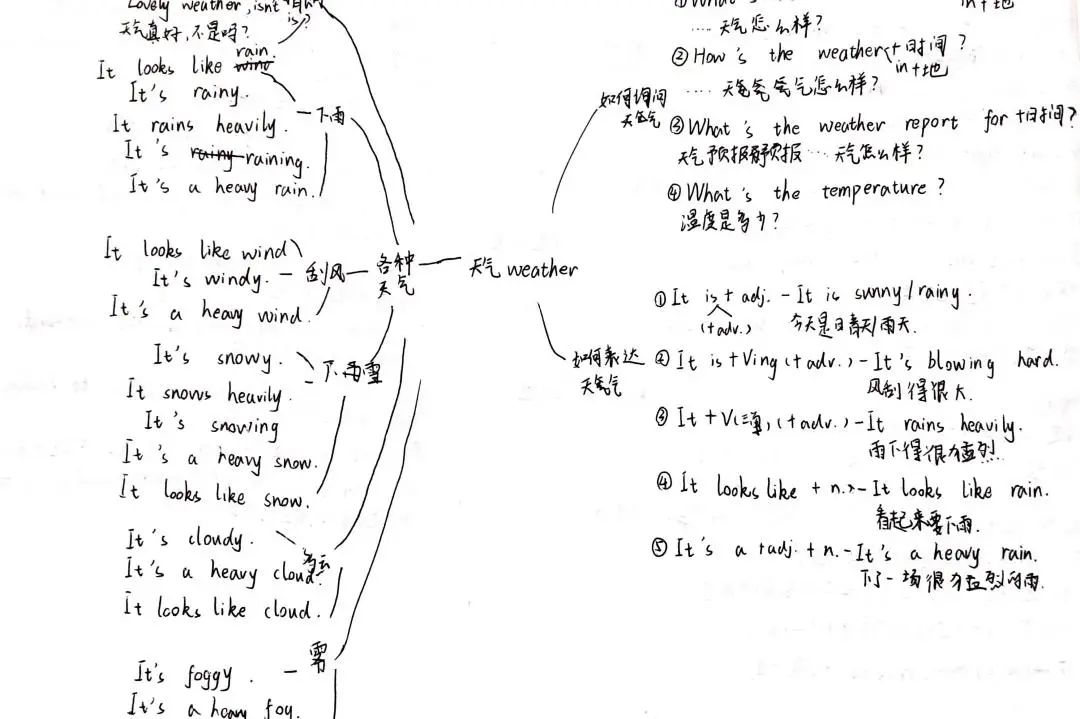 Lovely weather, isn't
is?
天气真好,不是吗?
rain.
It looks like wind
It's rainy.
It rains heavily.
It's rainy raining.
It's a heavy rain.
下雨
It looks like wind
It's windy.
It's a heavy wind.
刮风
各种
天气
It's snowy.
It snows heavily.
It's snowing
It's a heavy snow.
It looks like snow.
下雨雪
It's cloudy.
It's a heavy cloud.
It looks like cloud.
多云
It's foggy.
It's a heavy fog.
雾
天气 weather
如何询问
天气
①What's
in+地
.... 天气怎么样?
②How's the weather(+时间?
in+地
.... 天气怎么样?
③What's the weather report for +时间?
天气预报预报 ... 天气怎么样?
④What's the temperature?
温度是多少?
如何表达
天气
①It is + adj. - It is sunny/rainy.
(+adv.)
今天是晴天/雨天.
②It is + Ving (+adv.) - It's blowing hard.
风刮得很大.
③It + V(三单) (+adv.) - It rains heavily.
雨下得很猛烈.
④It looks like + n. - It looks like rain.
看起来要下雨.
⑤It's a +adj. + n. - It's a heavy rain.
下了一场很猛烈的雨.